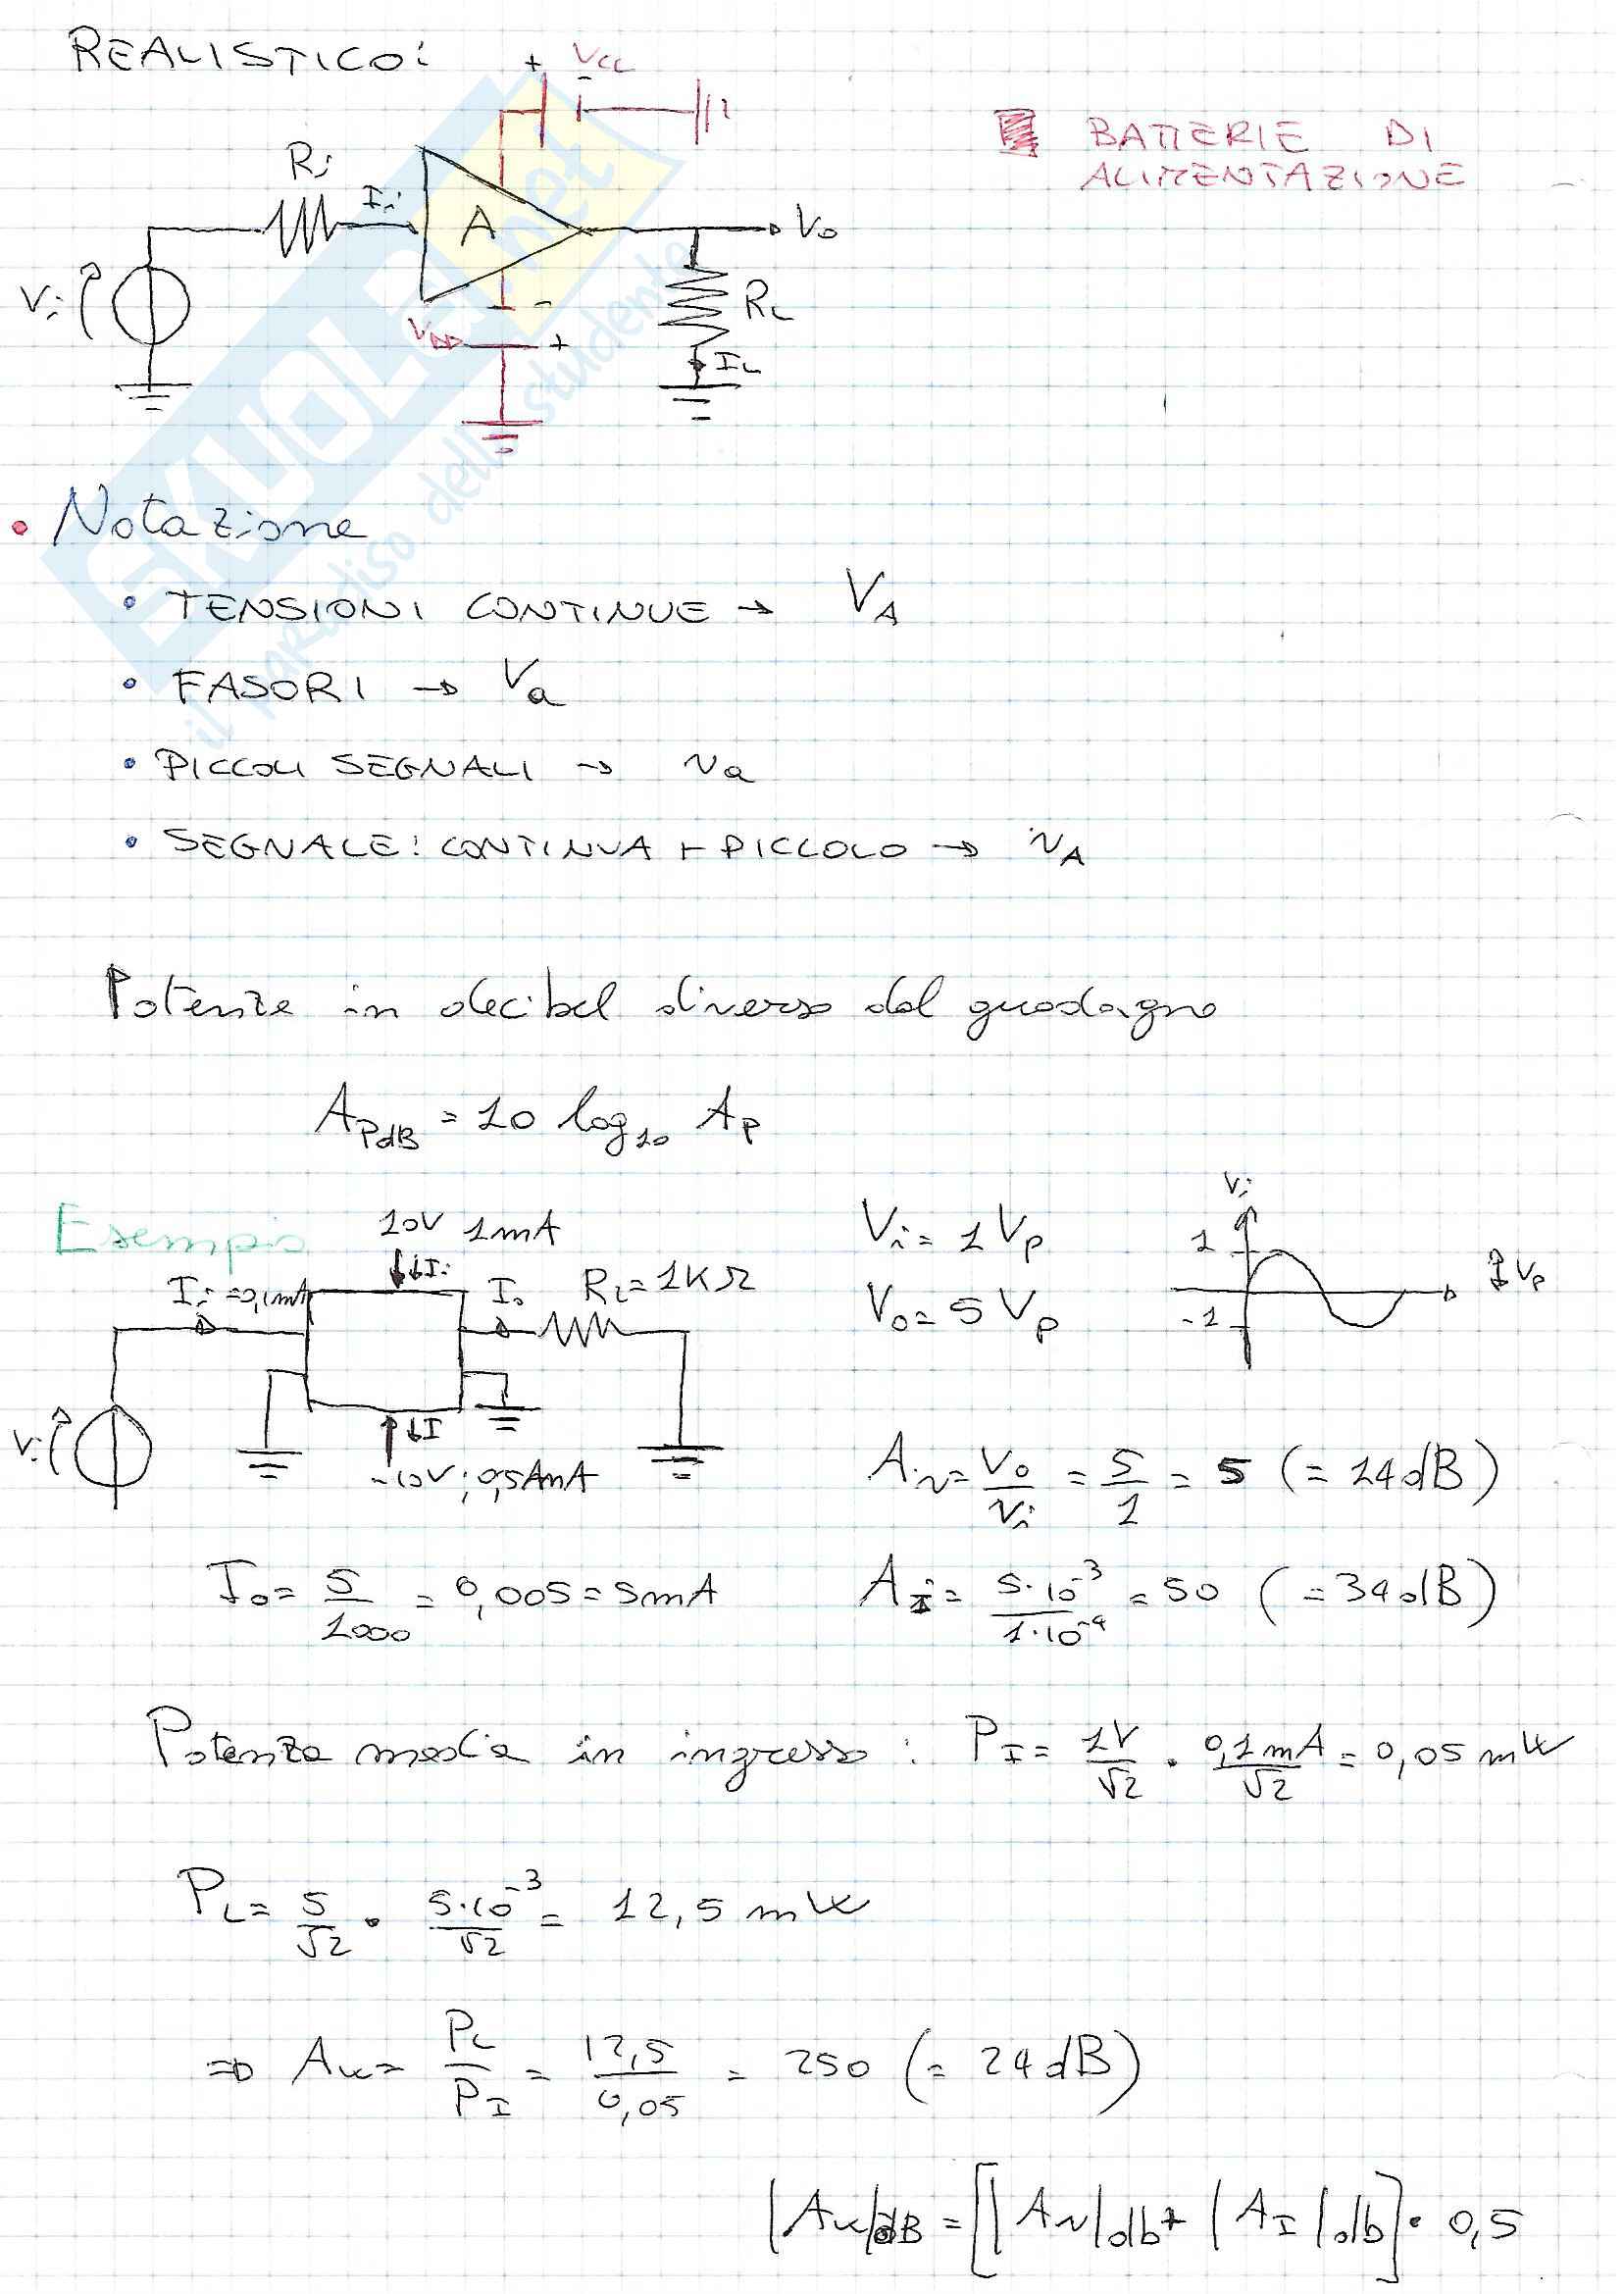 REALISTICO:
+ VCC -
BATTERIE DI
ALIMENTAZIONE
Ri
Ii
A
Vo
Vi
RL
-
VDD +
IL
SKUOLA.net
il paradiso dello studente
• Notazione
• TENSIONI CONTINUE → VA
• FASORI → Va
• PICCOLI SEGNALI → va
• SEGNALE: CONTINUA + PICCOLO → vA
Potenze in decibel diverso dal guadagno
APdB = 10 log10 AP
Esempio
10V 1mA
Ii = 0,1mA
↓↓Ii
Io
RL = 1KΩ
Vi = 1 Vp
Vo = 5 Vp
Vi
1
-1
↕ Vp
Vi
↑↓I
-10V; 0,5AmA
Av = Vo/Vi = 5/1 = 5 (= 14dB)
Io = 5/1000 = 0,005 = 5mA
AI = 5·10⁻³/1·10⁻⁴ = 50 (= 34dB)
Potenza media in ingresso: PI = 1V/√2 · 0,1mA/√2 = 0,05 mW
PL = 5/√2 · 5·10⁻³/√2 = 12,5 mW
⇒ Aw = PL/PI = 12,5/0,05 = 250 (= 24dB)
|Aw|dB = [|Av|db + |AI|db] · 0,5